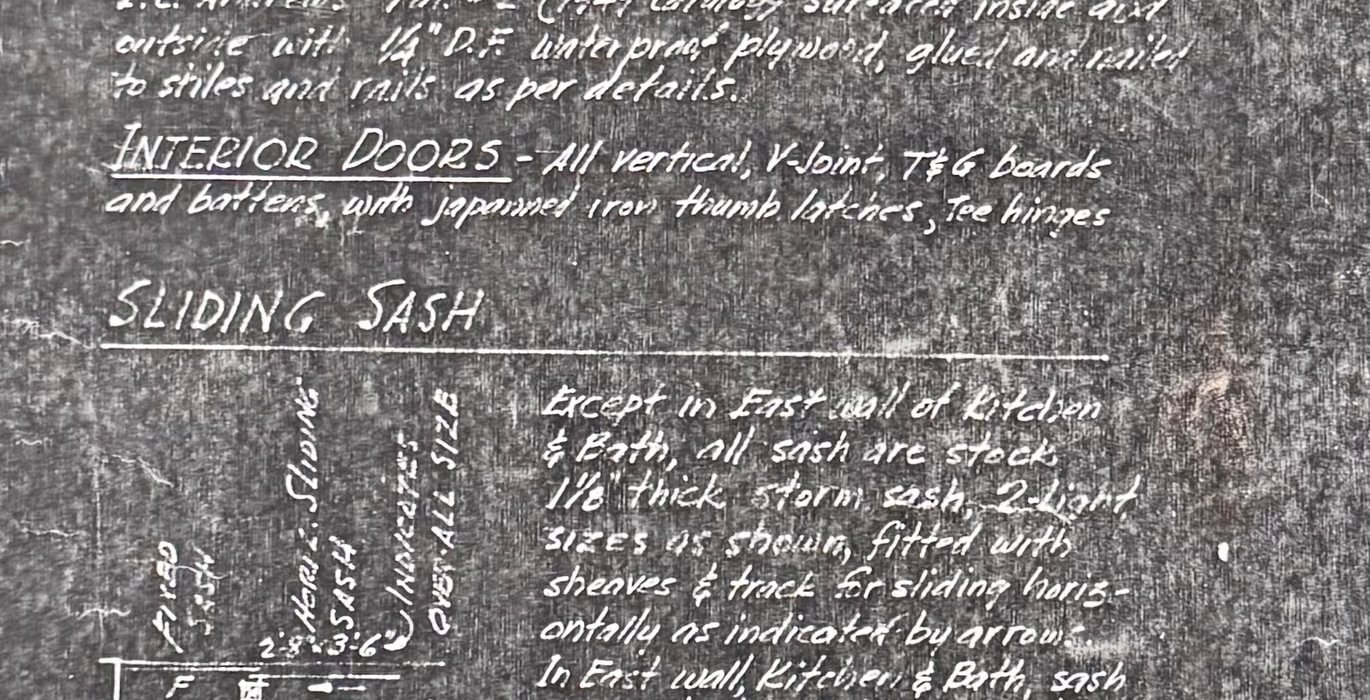 outside with 1/4" D.F. waterproof plywood, glued and nailed
to stiles and rails as per details.
INTERIOR DOORS - All vertical, V-Joint, T&G boards
and battens, with japanned iron thumb latches, Tee hinges
SLIDING SASH
FIXED
SASH
HORIZ. SLIDING
SASH
INDICATES
OVER-ALL SIZE
2'-8" x 3'-6"
F
Except in East wall of Kitchen
& Bath, all sash are stock
1 1/8" thick storm sash, 2-Light
sizes as shown, fitted with
sheaves & track for sliding horiz-
ontally as indicated by arrows.
In East wall, Kitchen & Bath, sash